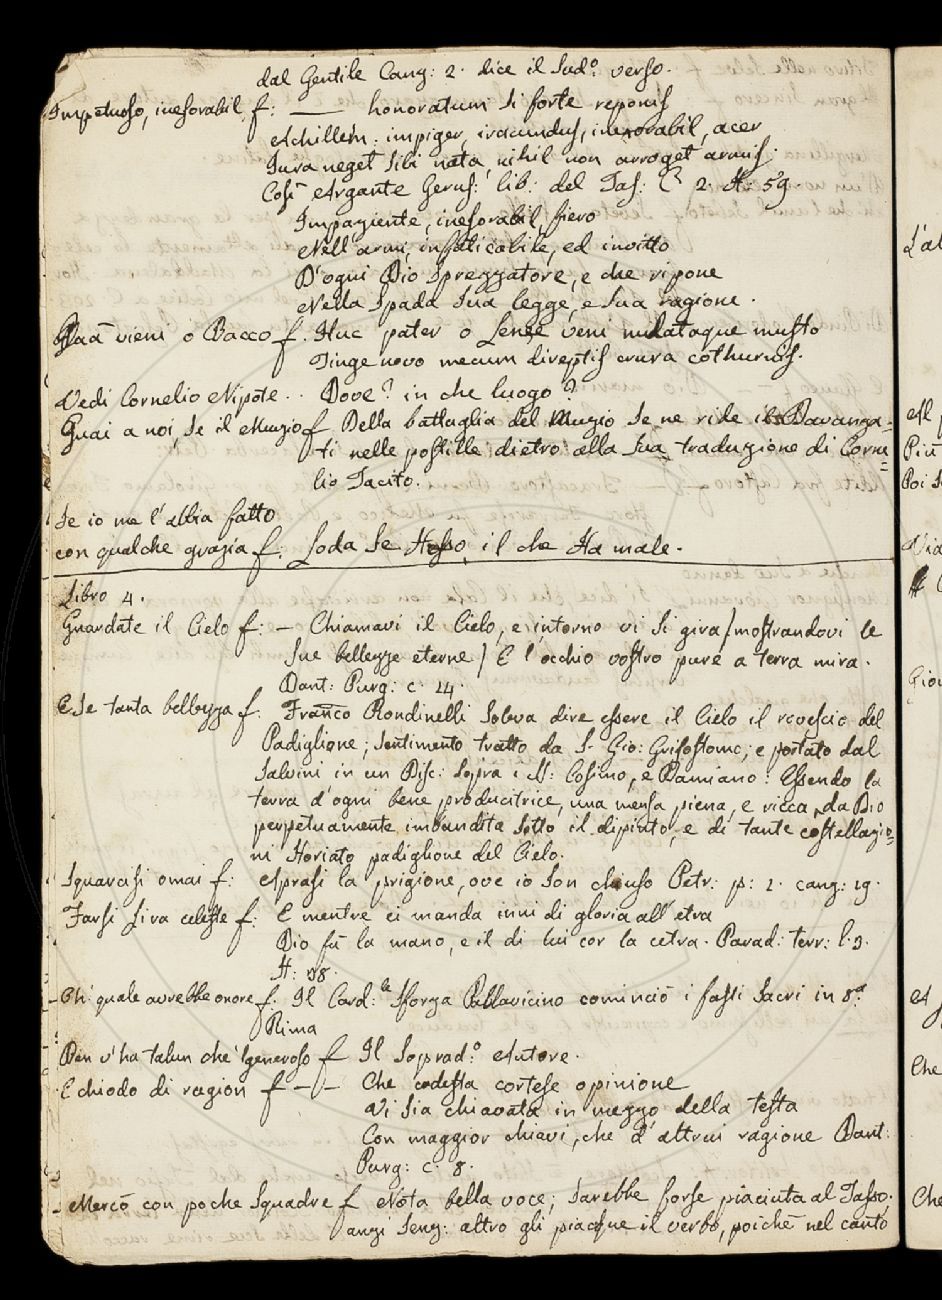 dal Gentile Canz: 2. dice il Sudº. verso.
Impetuoso, inesorabil f: —— honoratum si forte reponis
Achillem: impiger, iracundus, inexorabil, acer
Jura neget sibi nata, nihil non arroget armis.
Così Argante Gerus: lib: del Tas: C. 2. St: 59.
Impaziente, inesorabil, fiero
Nell'armi, infaticabile, ed invitto
D'ogni Dio sprezzatore, e che ripone
Nella spada sua legge, e sua ragione.
Quà vieni o Bacco f. Huc pater o Lenee veni nudataque musto
Tinge novo mecum direptis crura cothurnis.
Vedi Cornelio Nipote.. Dove? in che luogo?
Guai a noi, se il Muzio f Della battaglia del Muzio se ne ride il Davanza=
ti nelle postille dietro alla sua traduzione di Corne=
lio Tacito.
Se io me l'abbia fatto
con qualche grazia f. Loda se stesso, il che sta male.
Libro 4.
Guardate il Cielo f: — Chiamavi il Cielo, e intorno vi si gira / mostrandovi le
sue bellezze eterne / E l'occhio vostro pure a terra mira.
Dant: Purg: c. 14.
E se tanta bellezza f. Franco Rondinelli soleva dire essere il Cielo il rovescio del
Padiglione; sentimento tratto da S. Gio: Grisostomo; e portato dal
Salvini in un Disc: sopra i SS: Cosimo, e Damiano: Essendo la
terra d'ogni bene producitrice, una mensa piena, e ricca, da Dio
perpetuamente imbandita sotto il dipinto, e di tante costellazio=
ni storiato padiglione del Cielo.
Squarcisi omai f: Aprasi la prigione, ove io son chiuso Petr: p: 1. canz: 19.
Farsi lira celeste f: E mentre ei manda inni di gloria all'etra
Dio fù la mano, e il di lui cor la cetra. Parad: terr: l. 3.
St: 98.
Oh' quale avrebbe onore f. Il Card:le Sforza Pallavicino cominciò i fasti sacri in 8.ª
Rima
Ben v'ha talun che 'l generoso f Il Soprad.º Autore.
E chiodo di ragion f — — Che codesta cortese opinione
Vi sia chiavata in mezzo della testa
Con maggior chiavi, che d'altrui ragione Dant:
Purg: c. 8.
Mercò con poche squadre f Nota bella voce; sarebbe forse piaciuta al Tasso.
anzi senz: altro gli piacque il verbo, poichè nel canto